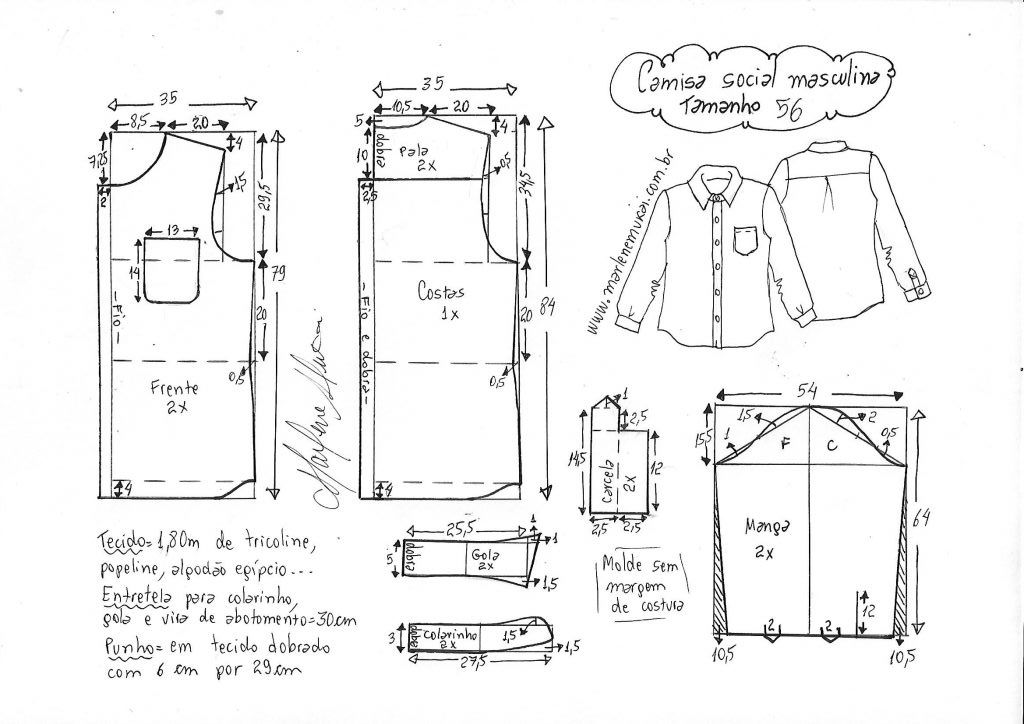 Camisa social masculina
Tamanho 56
www.marlenemukai.com.br
35
8,5
20
4
7,25
2
1,5
29,5
79
13
14
20
-Fio-
0,5
Frente
2x
4
35
10,5
20
5
4
10
dobra
Pala
2x
0,5
2,5
34,5
Costas
1x
-Fio e dobra-
20
84
0,5
4
1
2,5
14,5
12
Carcela
2x
2,5
2,5
Molde sem
margem
de costura
54
1,5
2
15,5
1
0,5
F
C
64
Manga
2x
12
2
2
10,5
10,5
25,5
1
1
5
dobra
Gola
2x
1,5
3
dobra
Colarinho
2x
1,5
1,5
27,5
Tecido=1,80m de tricoline,
popeline, algodão egípcio...
Entretela para colarinho,
gola e vira de abotomento=30cm
Punho=em tecido dobrado
com 6 cm por 29cm